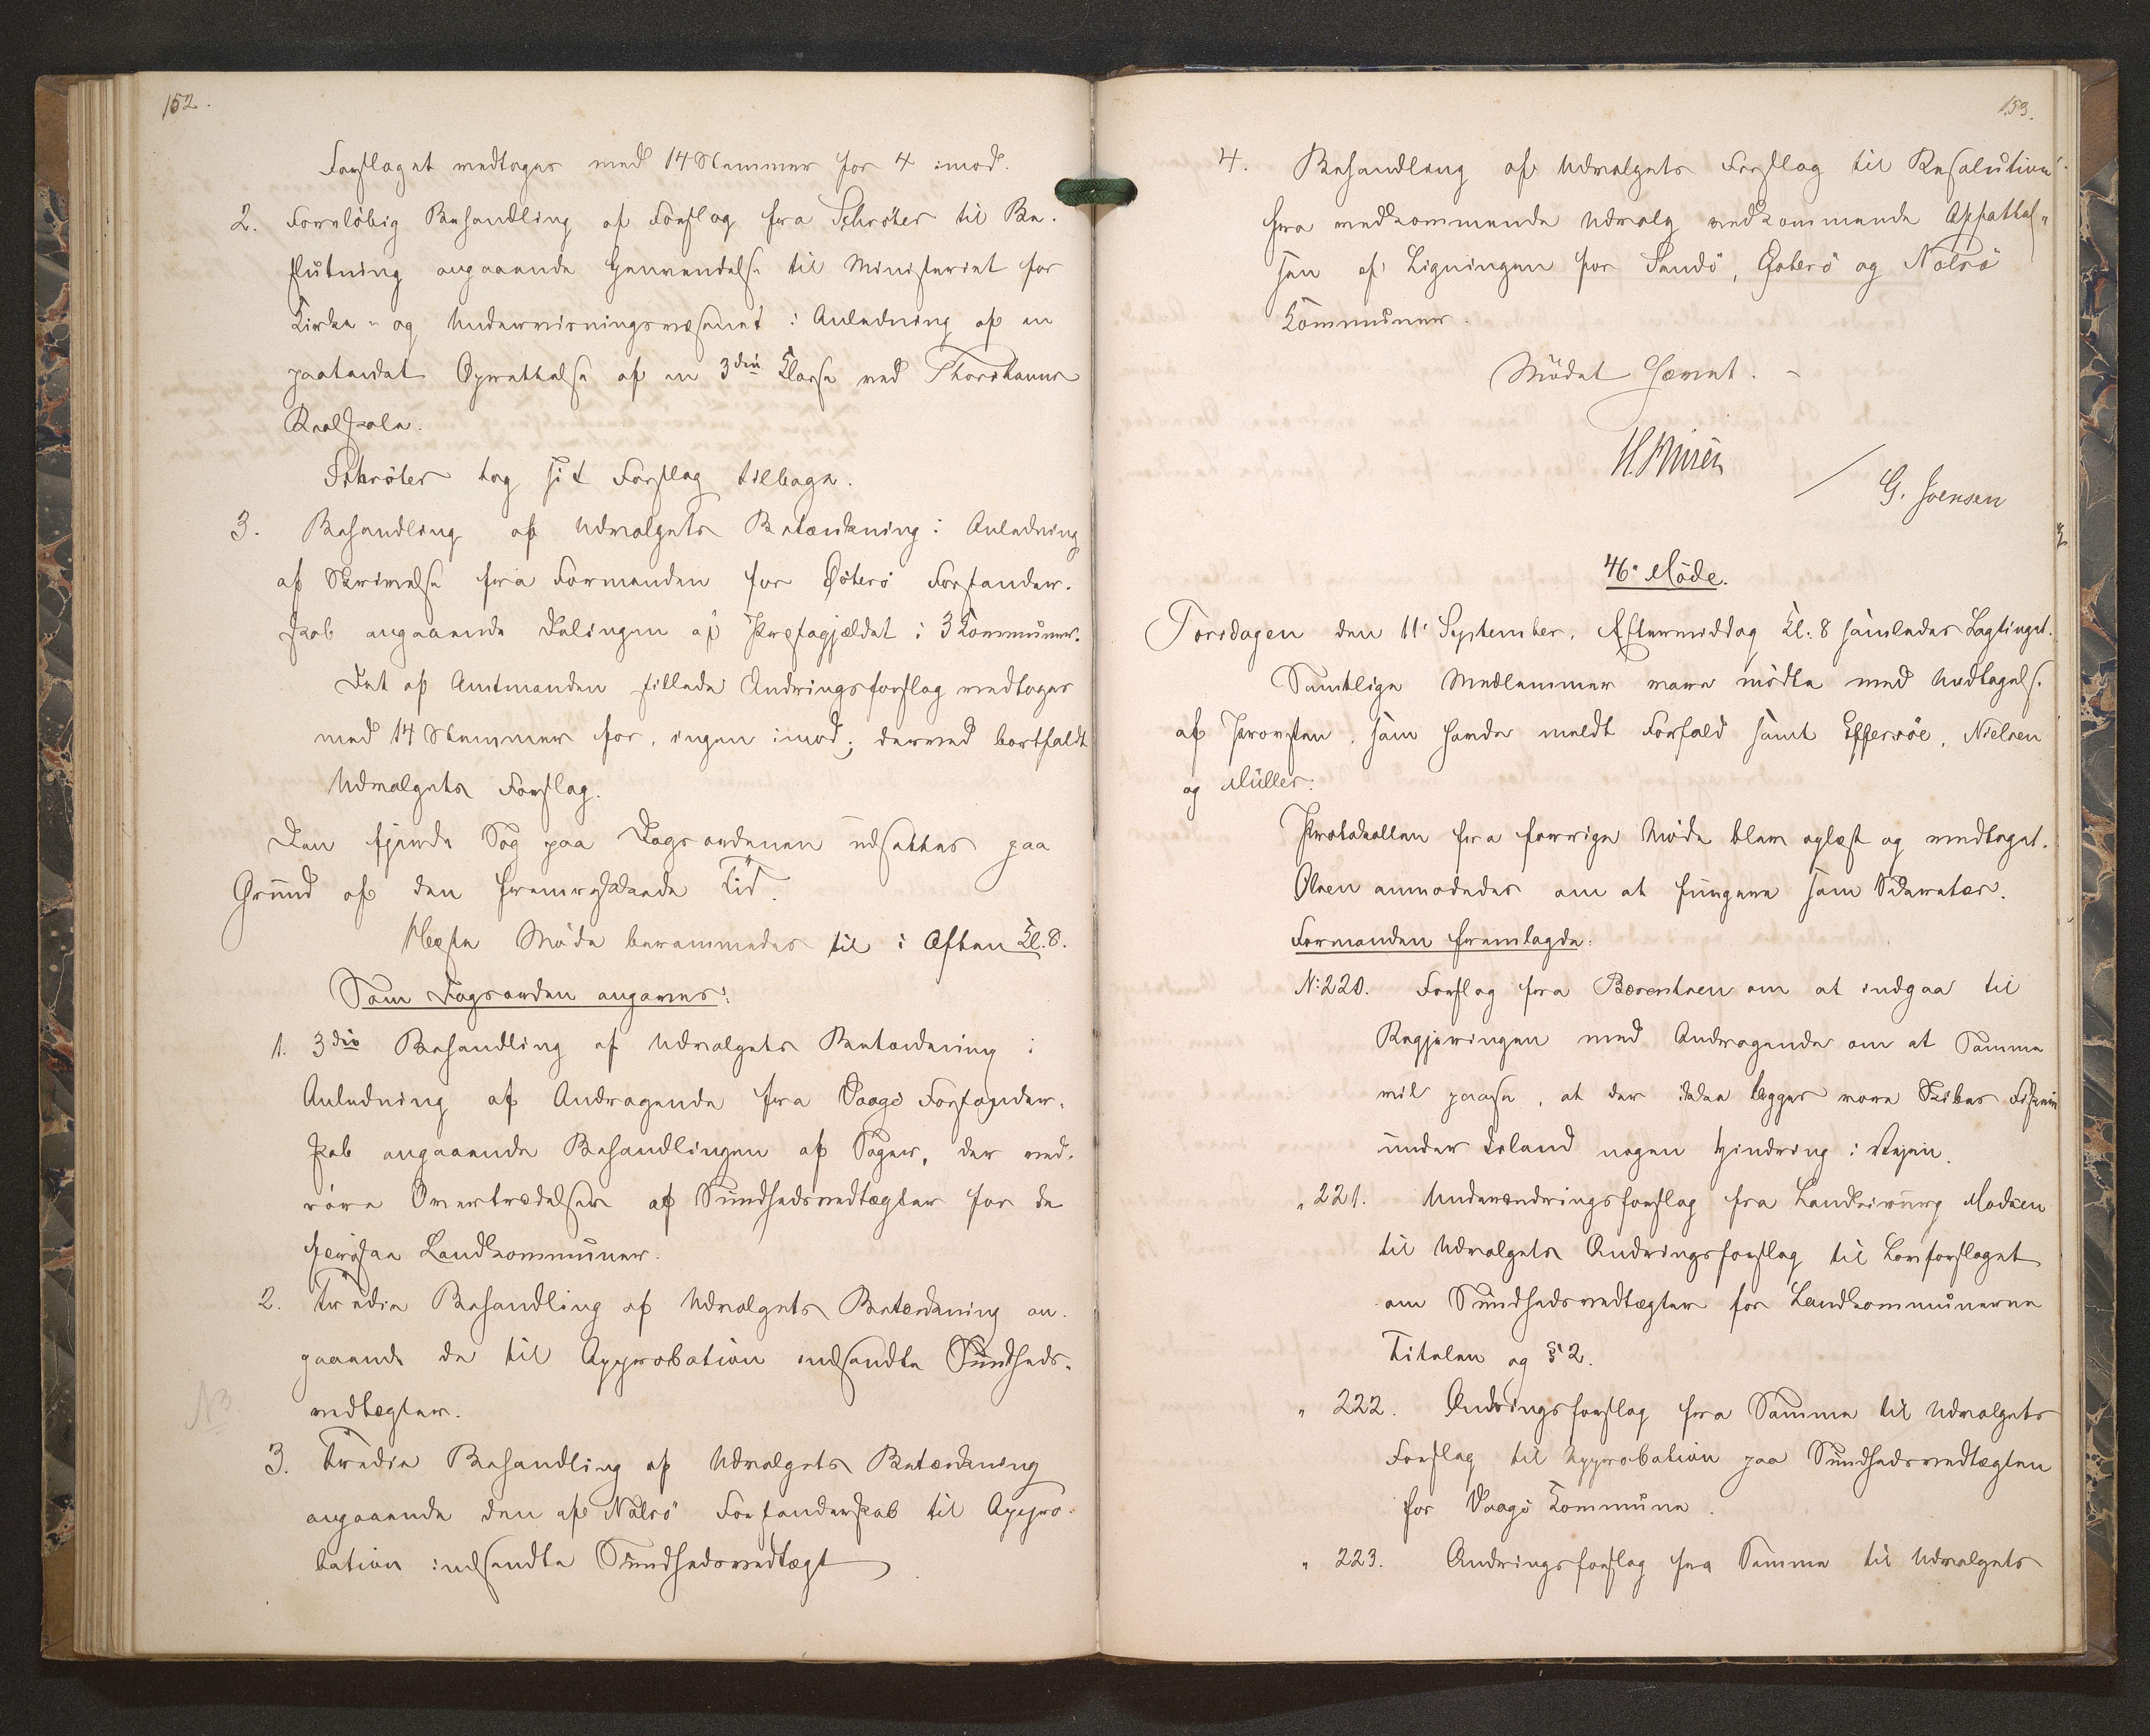 152.
Forslaget vedtoges med 14 Stemmer for 4 imod.
2. Foreløbig Behandling af Forslag fra Schrøter til Be-
slutning angaaende Henvendelse til Ministeriet for
Kirke- og Undervisningsvæsenet i Anledning af en
paatænkt Oprettelse af en 3die Klasse ved Thorshavns
Realskole.
Schrøter tog sit Forslag tilbage.
3. Behandling af Udvalgets Betænkning i Anledning
af Skrivelse fra Formanden for Østerø Forstander-
skab angaaende Delingen af Præstegjældet i 3 Kommuner.
Det af Amtmanden stillede Ændringsforslag vedtoges
med 14 Stemmer for, ingen imod; derved bortfaldt
Udvalgets Forslag.
Den fjerde Sag paa Dagsordenen udsattes paa
Grund af den fremrykkede Tid.
Næste Møde berammedes til i Aften Kl. 8.
Som Dagsorden angaves:
1. 3die Behandling af Udvalgets Betænkning i
Anledning af Andragende fra Vaagø Forstander-
skab angaaende Behandlingen af Sager, der ved-
røre Overtrædelser af Sundhedsvedtægter for de
færøske Landkommuner.
2. Tredie Behandling af Udvalgets Betænkning an-
gaaende de til Approbation indsendte Sundheds-
vedtægter.
N3.
3. Tredie Behandling af Udvalgets Betænkning
angaaende den af Nolsø Forstanderskab til Appro-
bation indsendte Sundhedsvedtægt
153.
4. Behandling af Udvalgets Forslag til Resolution
fra vedkommende Udvalg vedkommende
af Ligningen for Sandø, Østerø og Nolsø
Kommuner.
Mødet hævet. -
G. Joensen
46' Møde.
Torsdagen den 11' September, Eftermiddag Kl. 8 samledes Lagtinget.
Samtlige Medlemmer vare mødte med Undtagelse
af Provsten, som havde meldt Forfald samt Effersøe, Nielsen
og Müller.
Protokollen fra forrige Møde blev oplæst og vedtaget.
Olsen anmodedes om at fungere som Sekretær.
Formanden fremlagde:
N: 220. Forslag fra Bærentsen om at indgaa til
Regjeringen med Andragende om at Samme
vil paase, at der ikke lægges vore Skibes Fiskeri
under Island nogen Hindring i Vejen.
" 221. Underændringsforslag fra Landkirurg Madsen
til Udvalgets Ændringsforslag til Lovforslaget
om Sundhedsvedtægter for Landkommunerne
Titelen og § 2.
" 222. Ændringsforslag fra Samme til Udvalgets
Forslag til Approbation paa Sundhedsvedtægten
for Vaagø Kommune.
" 223. Ændringsforslag fra Samme til Udvalgets